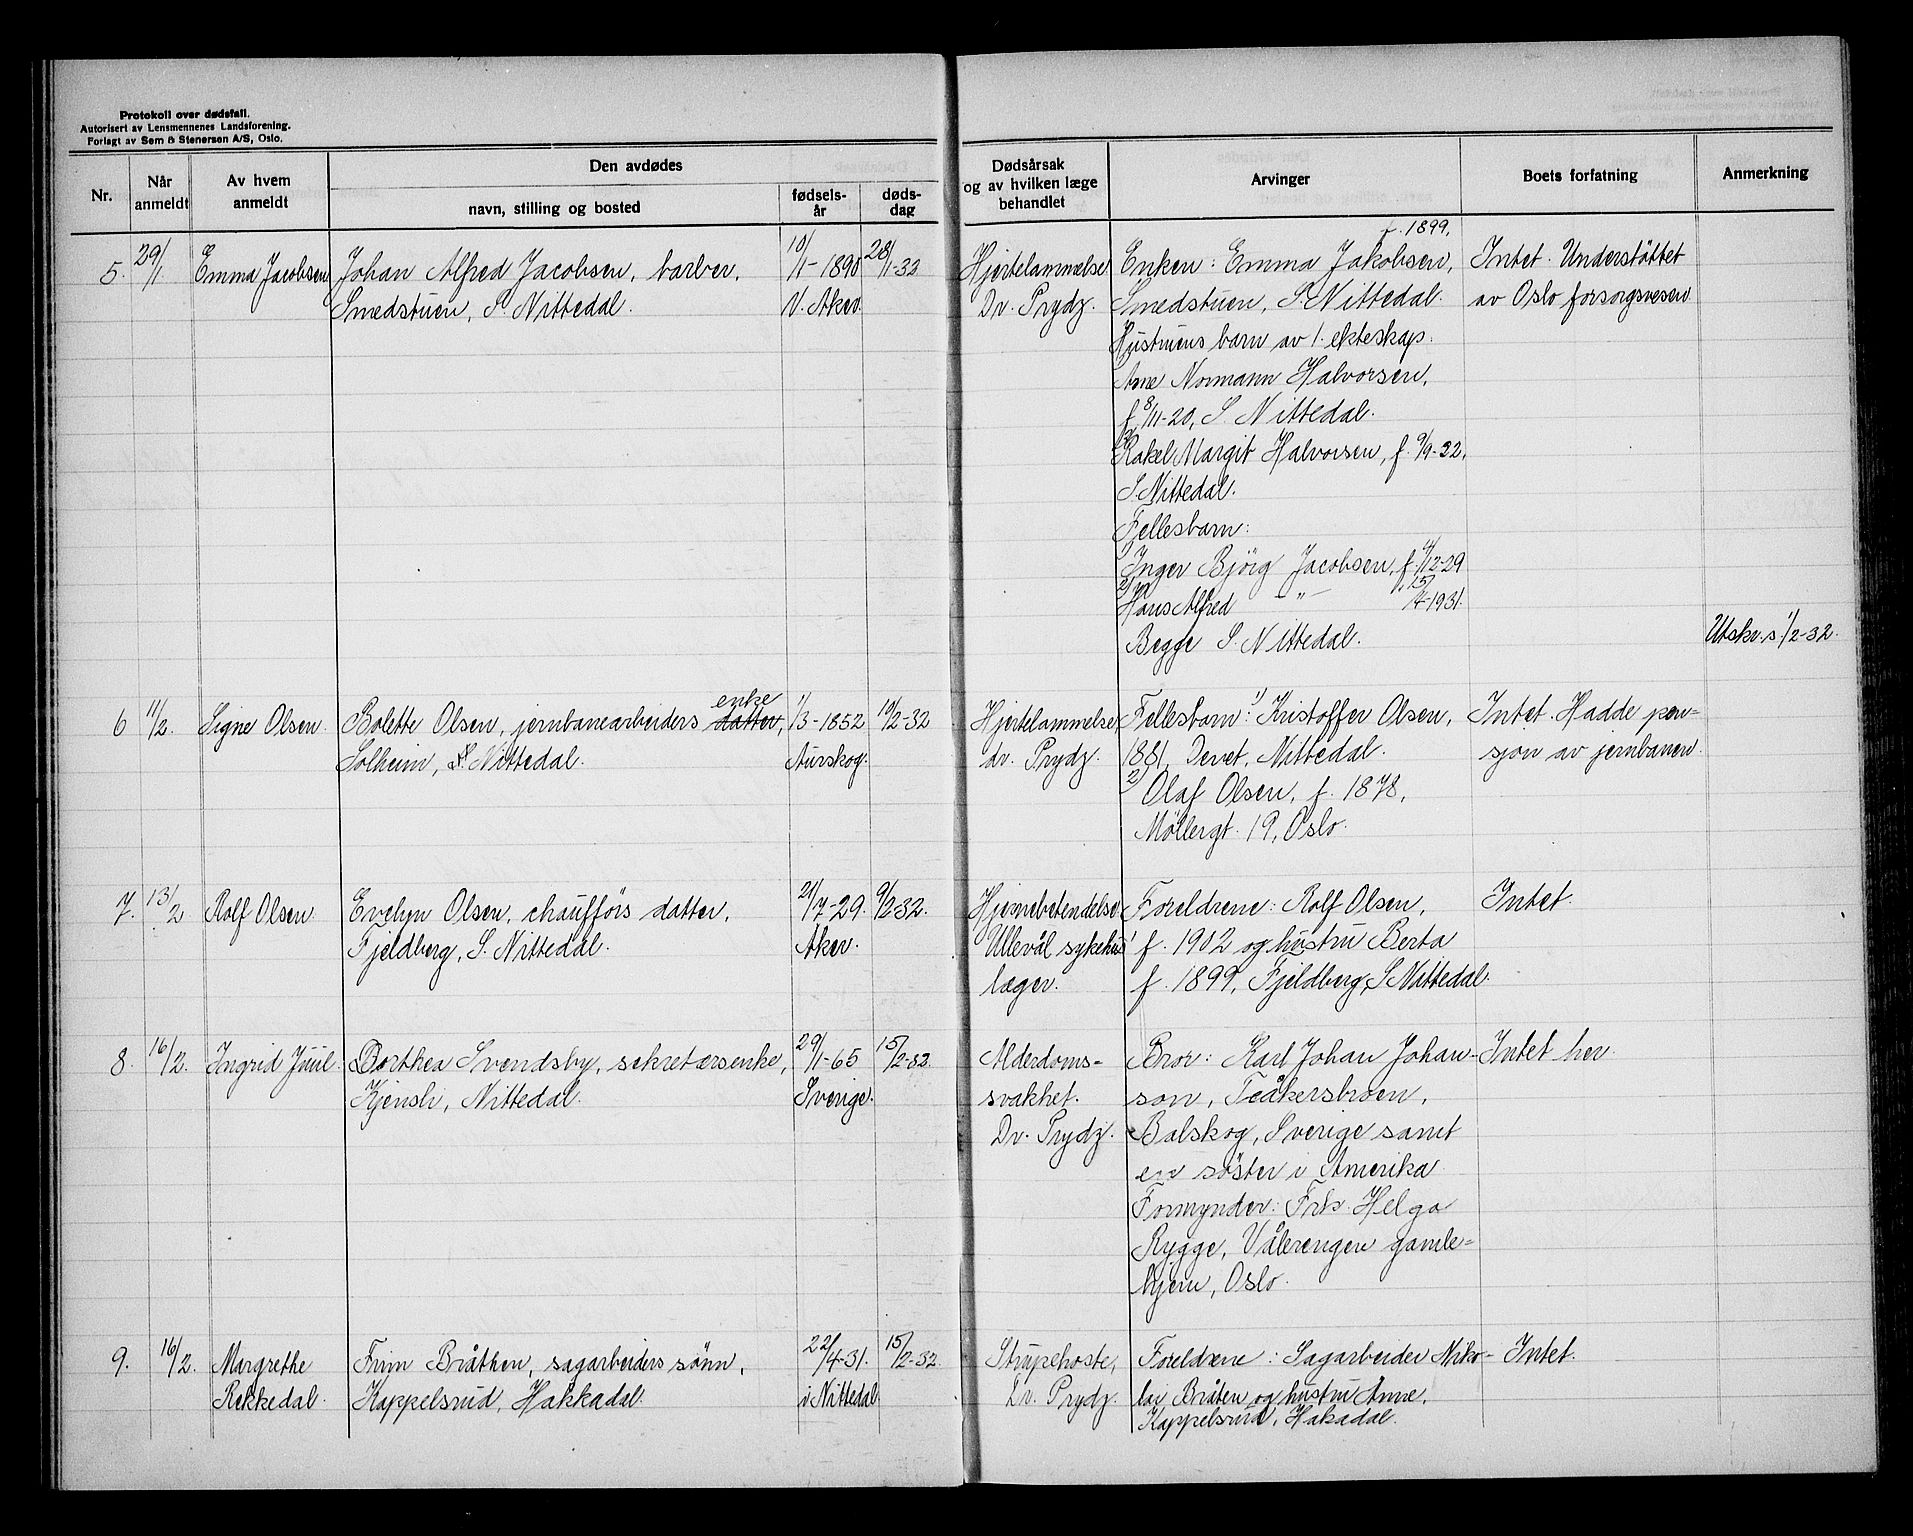 Protokoll over dødsfall.
Autorisert av Lensmennenes Landsforening.
Forlagt av Sem & Stenersen A/S, Oslo.
Nr.
Når anmeldt
Av hvem anmeldt
Den avdødes
navn, stilling og bosted
fødsels-år
døds-dag
Dødsårsak og av hvilken læge behandlet
Arvinger
Boets forfatning
Anmerkning
5. 29/1 Emma Jacobsen
Johan Alfred Jacobsen, barber,
Smedstuen, S. Nittedal.
10/1-1890
V. Aker.
28/1-32
Hjertelammelse
Dr. Prydz.
f. 1899.
Enken: Emma Jakobsen,
Smedstuen, S. Nittedal.
Hustruens barn av 1. ekteskap:
Arne Normann Halvorsen,
f. 8/11-20, S. Nittedal.
Rakel Margit Halvorsen, f. 9/9-22,
S. Nittedal.
Fellesbarn:
1) Inger Björg Jacobsen, f. 4/12-29
2) Hans Alfred -"- f. 15/4-1931.
Begge S. Nittedal.
Intet. Understöttet
av Oslo forsorgsvesen
Utskr. s 1/2-32.
6 11/2. Signe Olsen.
Bolette Olsen, jernbanearbeiders datter, enke
Solheim, S. Nittedal.
1/3-1852
Aurskog.
10/2-32
Hjertelammelse,
dr. Prydz.
Fellesbarn: 1) Kristoffer Olsen,
1881, Nittedal.
2) Olaf Olsen, f. 1878,
Möllergt. 19, Oslo.
Intet. Hadde pen-
sjon av jernbanen.
7. 13/2 Rolf Olsen.
Evelyn Olsen, chaufförs datter,
Fjeldberg, S. Nittedal.
21/7-29.
Aker.
9/2-32.
Hjernebetendelse.
Ullevål sykehus'
læger.
Foreldrene: Rolf Olsen,
f. 1902 og hustru Berta
f. 1899, Fjeldberg, S. Nittedal.
Intet.
8. 16/2. Ingrid Juul.
Dorthea Svendsby, sekretærsenke,
Kjensli, Nittedal.
29/1-65
Sverige.
15/2-32.
Alderdoms-
svakhet.
Dr. Prydz.
Bror: Karl Johan Johan-
son,
Balskog, Sverige samt
en söster i Amerika
Formynder: Frk. Helga
Rygge, Vålerengen gamle-
hjem, Oslo.
Intet her.
9. 16/2. Margrethe
Rekkedal.
Frim Bråthen, sagarbeiders sönn,
Kappelsrud, Hakkadal.
22/4-31.
i Nittedal
15/2-32.
Strupehoste,
Dr. Prydz.
Foreldrene: Sagarbeider Niko-
lai Bråten og hustru Anne,
Kappelsrud, Hakadal.
Intet.